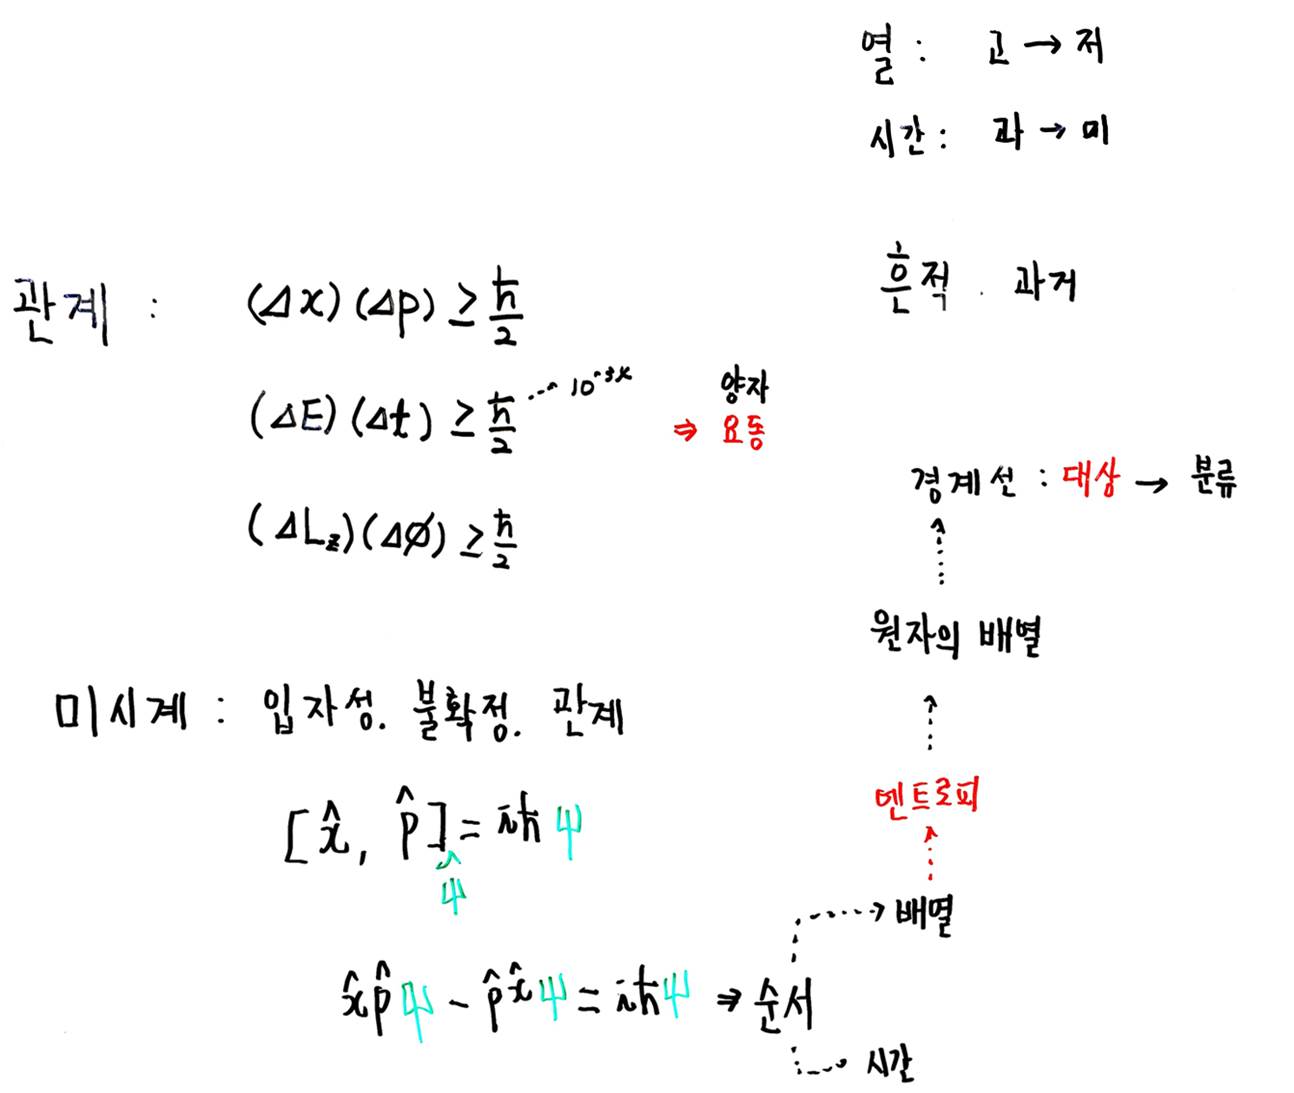 열 : 고 → 저
시간 : 과 → 미
흔적 . 과거
관계 : (Δx)(Δp) ≥ ℏ/2
(ΔE)(Δt) ≥ ℏ/2 10⁻³⁴
⇒ 양자 요동
(ΔL_z)(Δφ) ≥ ℏ/2
경계선 : 대상 → 분류
원자의 배열
미시계 : 입자성. 불확정. 관계
엔트로피
[x̂, p̂]ψ = iℏψ
배열
x̂p̂ψ - p̂x̂ψ = iℏψ ⇒ 순서
시간